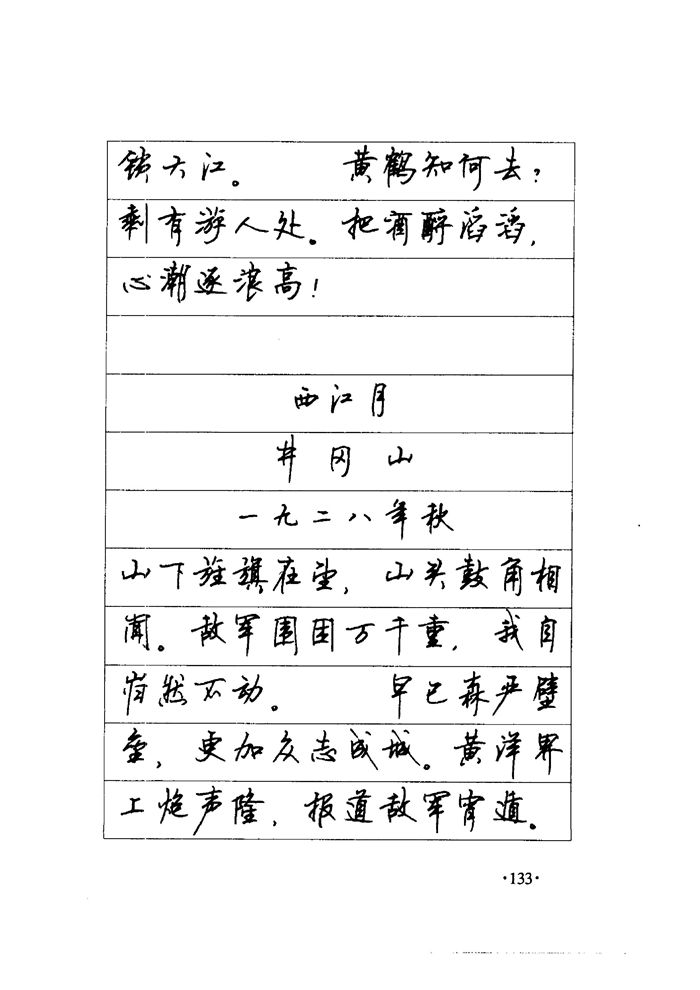 锁大江。 黄鹤知何去?
剩有游人处。把酒酹滔滔,
心潮逐浪高!
西江月
井冈山
一九二八年秋
山下旌旗在望, 山头鼓角相
闻。敌军围困万千重, 我自
岿然不动。 早已森严壁
垒, 更加众志成城。黄洋界
上炮声隆, 报道敌军宵遁。
·133·